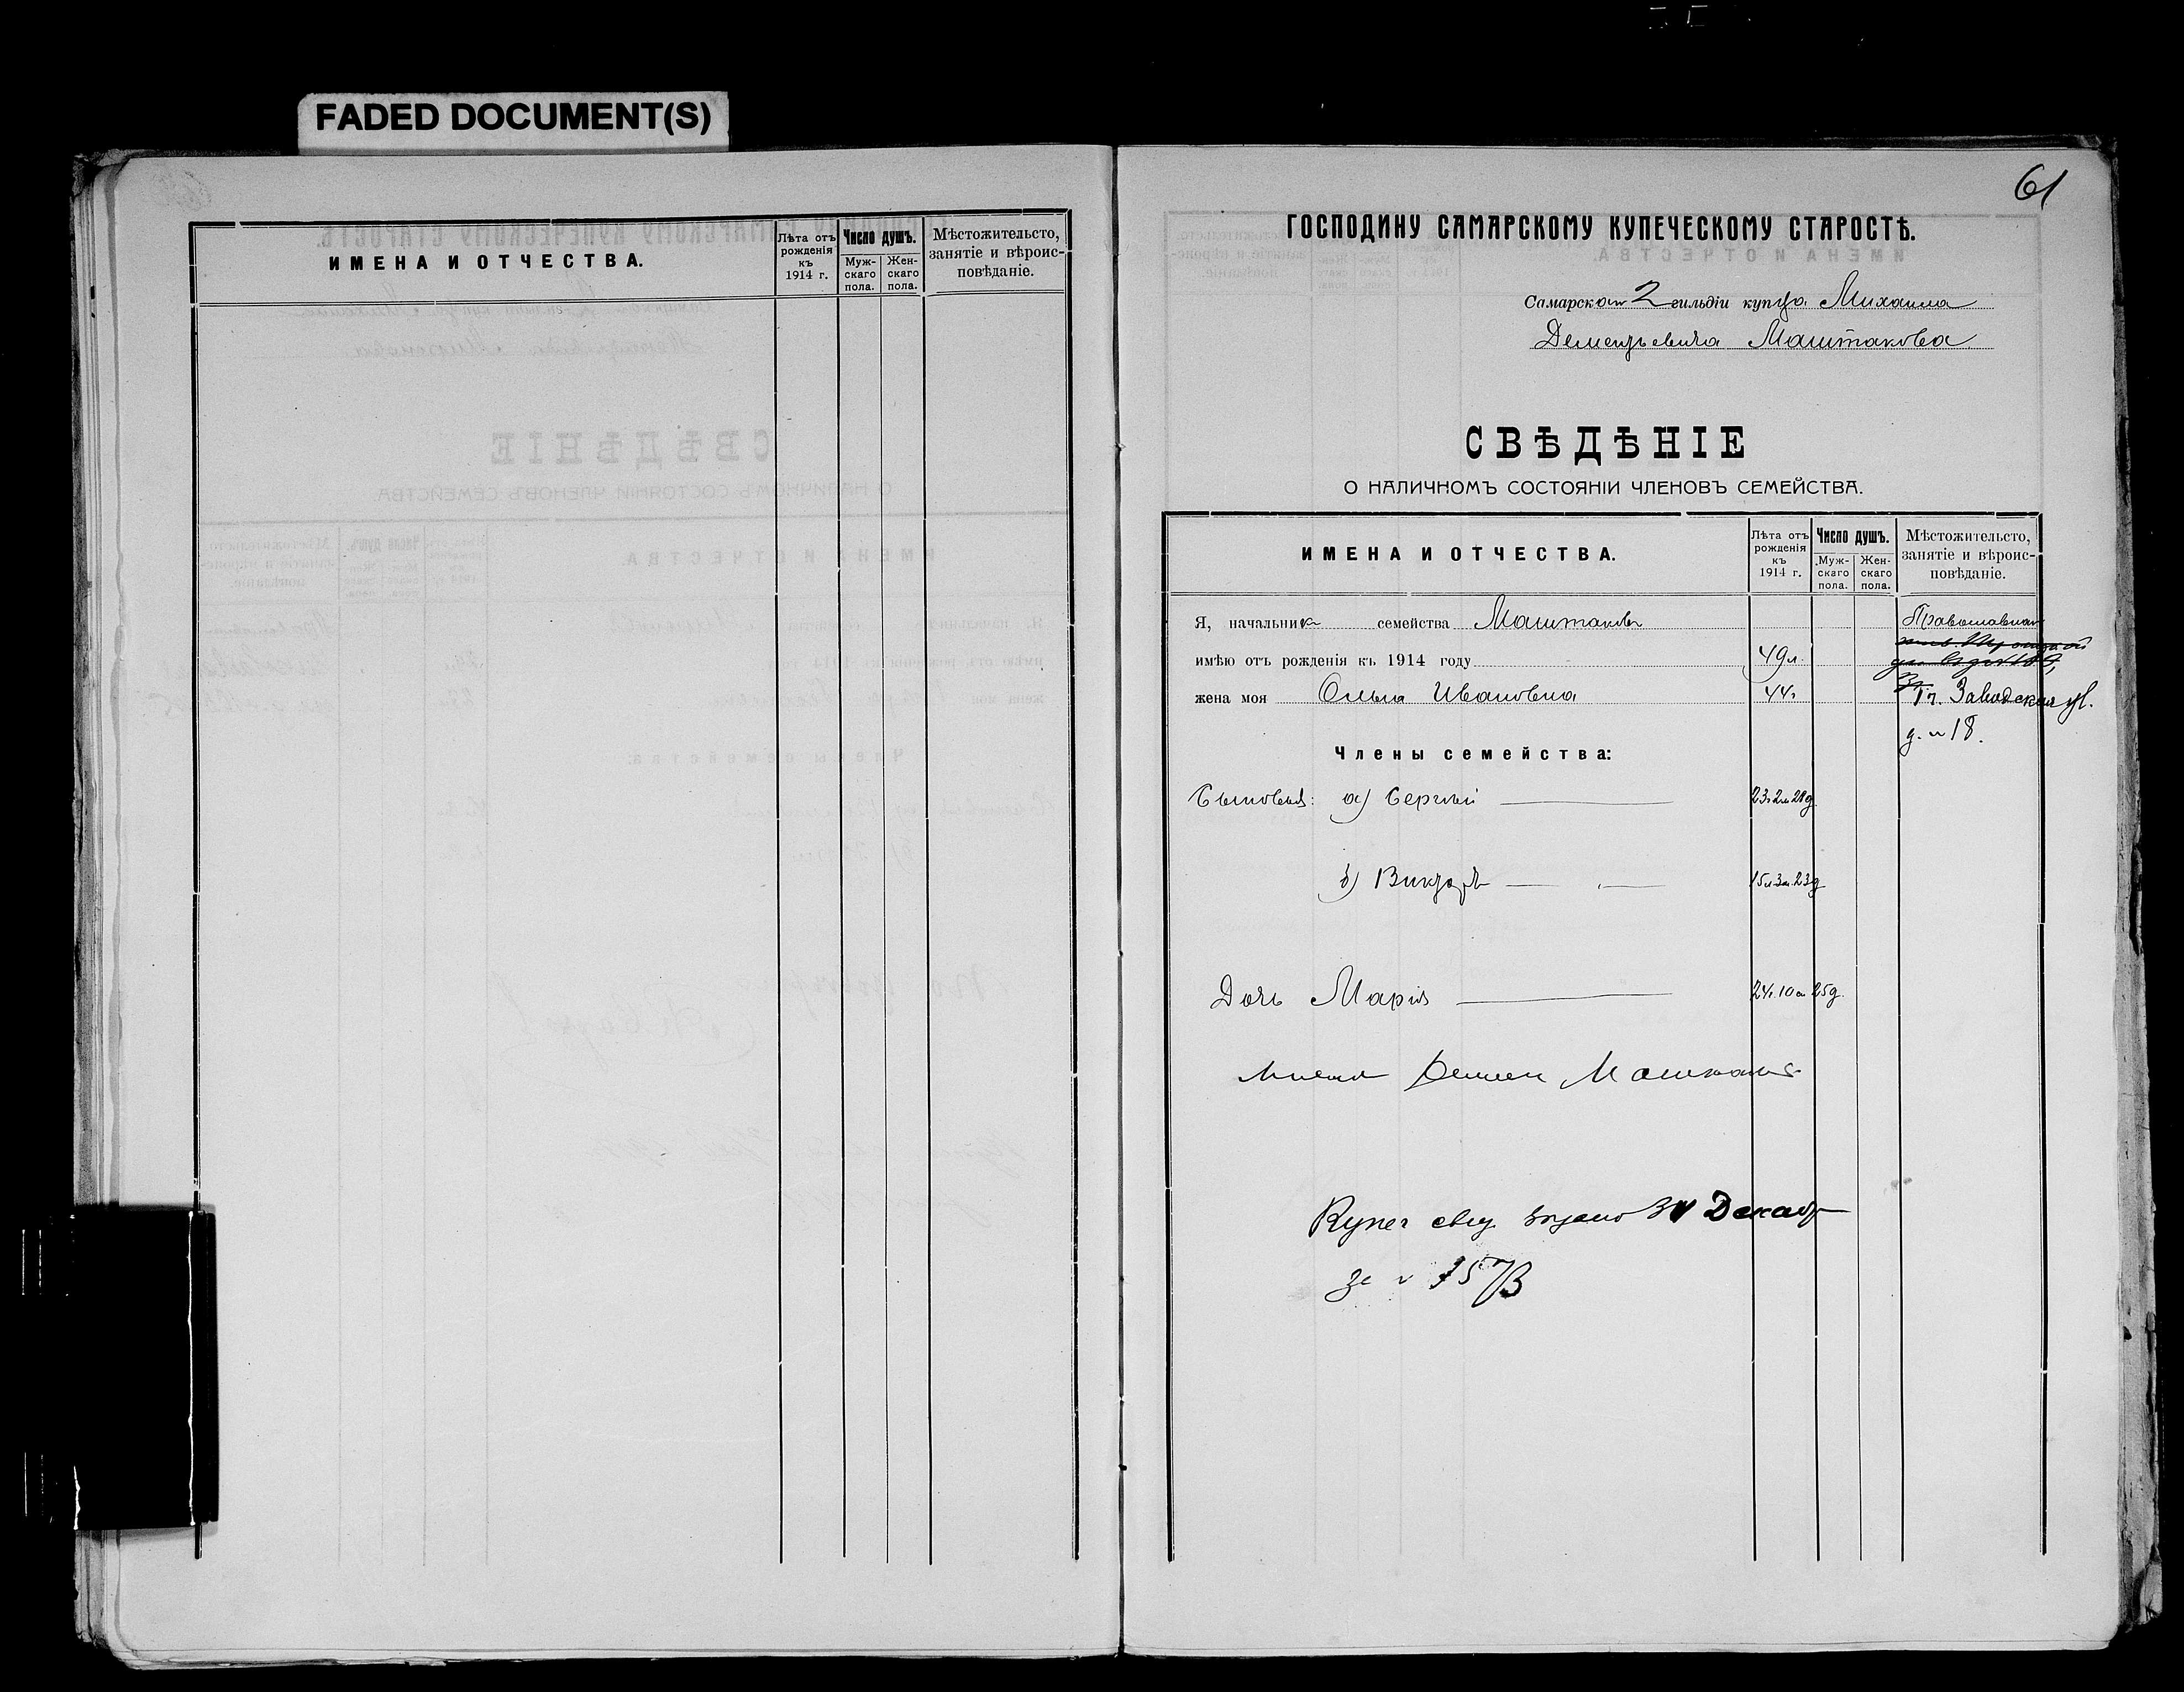 FADED DOCUMENT(S)
ИМЕНА И ОТЧЕСТВА.
Лѣта отъ рожденія къ 1914 г.
Число душъ.
Муж-скаго пола.
Жен-скаго пола.
Мѣстожительсто, занятіе и вѣроис-повѣданіе.
61
ГОСПОДИНУ САМАРСКОМУ КУПЕЧЕСКОМУ СТАРОСТѢ.
Самарскаго 2 гильдіи купца Михаила
Дементьевича Маштакова
СВѢДѢНІЕ
О НАЛИЧНОМЪ СОСТОЯНІИ ЧЛЕНОВЪ СЕМЕЙСТВА.
ИМЕНА И ОТЧЕСТВА.
Лѣта отъ рожденія къ 1914 г.
Число душъ.
Муж-скаго пола.
Жен-скаго пола.
Мѣстожительсто, занятіе и вѣроис-повѣданіе.
Я, начальник семейства Маштаковъ
Православная
имѣю отъ рожденія къ 1914 году 49 л.
жена моя Ольга Ивановна 44 г. Заводская ул.
д. № 18.
Члены семейства:
Сыновья: а) Сергѣй 23 г. 2 м. 28 д.
б) Викторъ 15 л. 3 м. 23 д.
Дочь Марія 24 г. 10 м. 25 д.
Маштаковъ
Купеч. свид. Декаб
за №